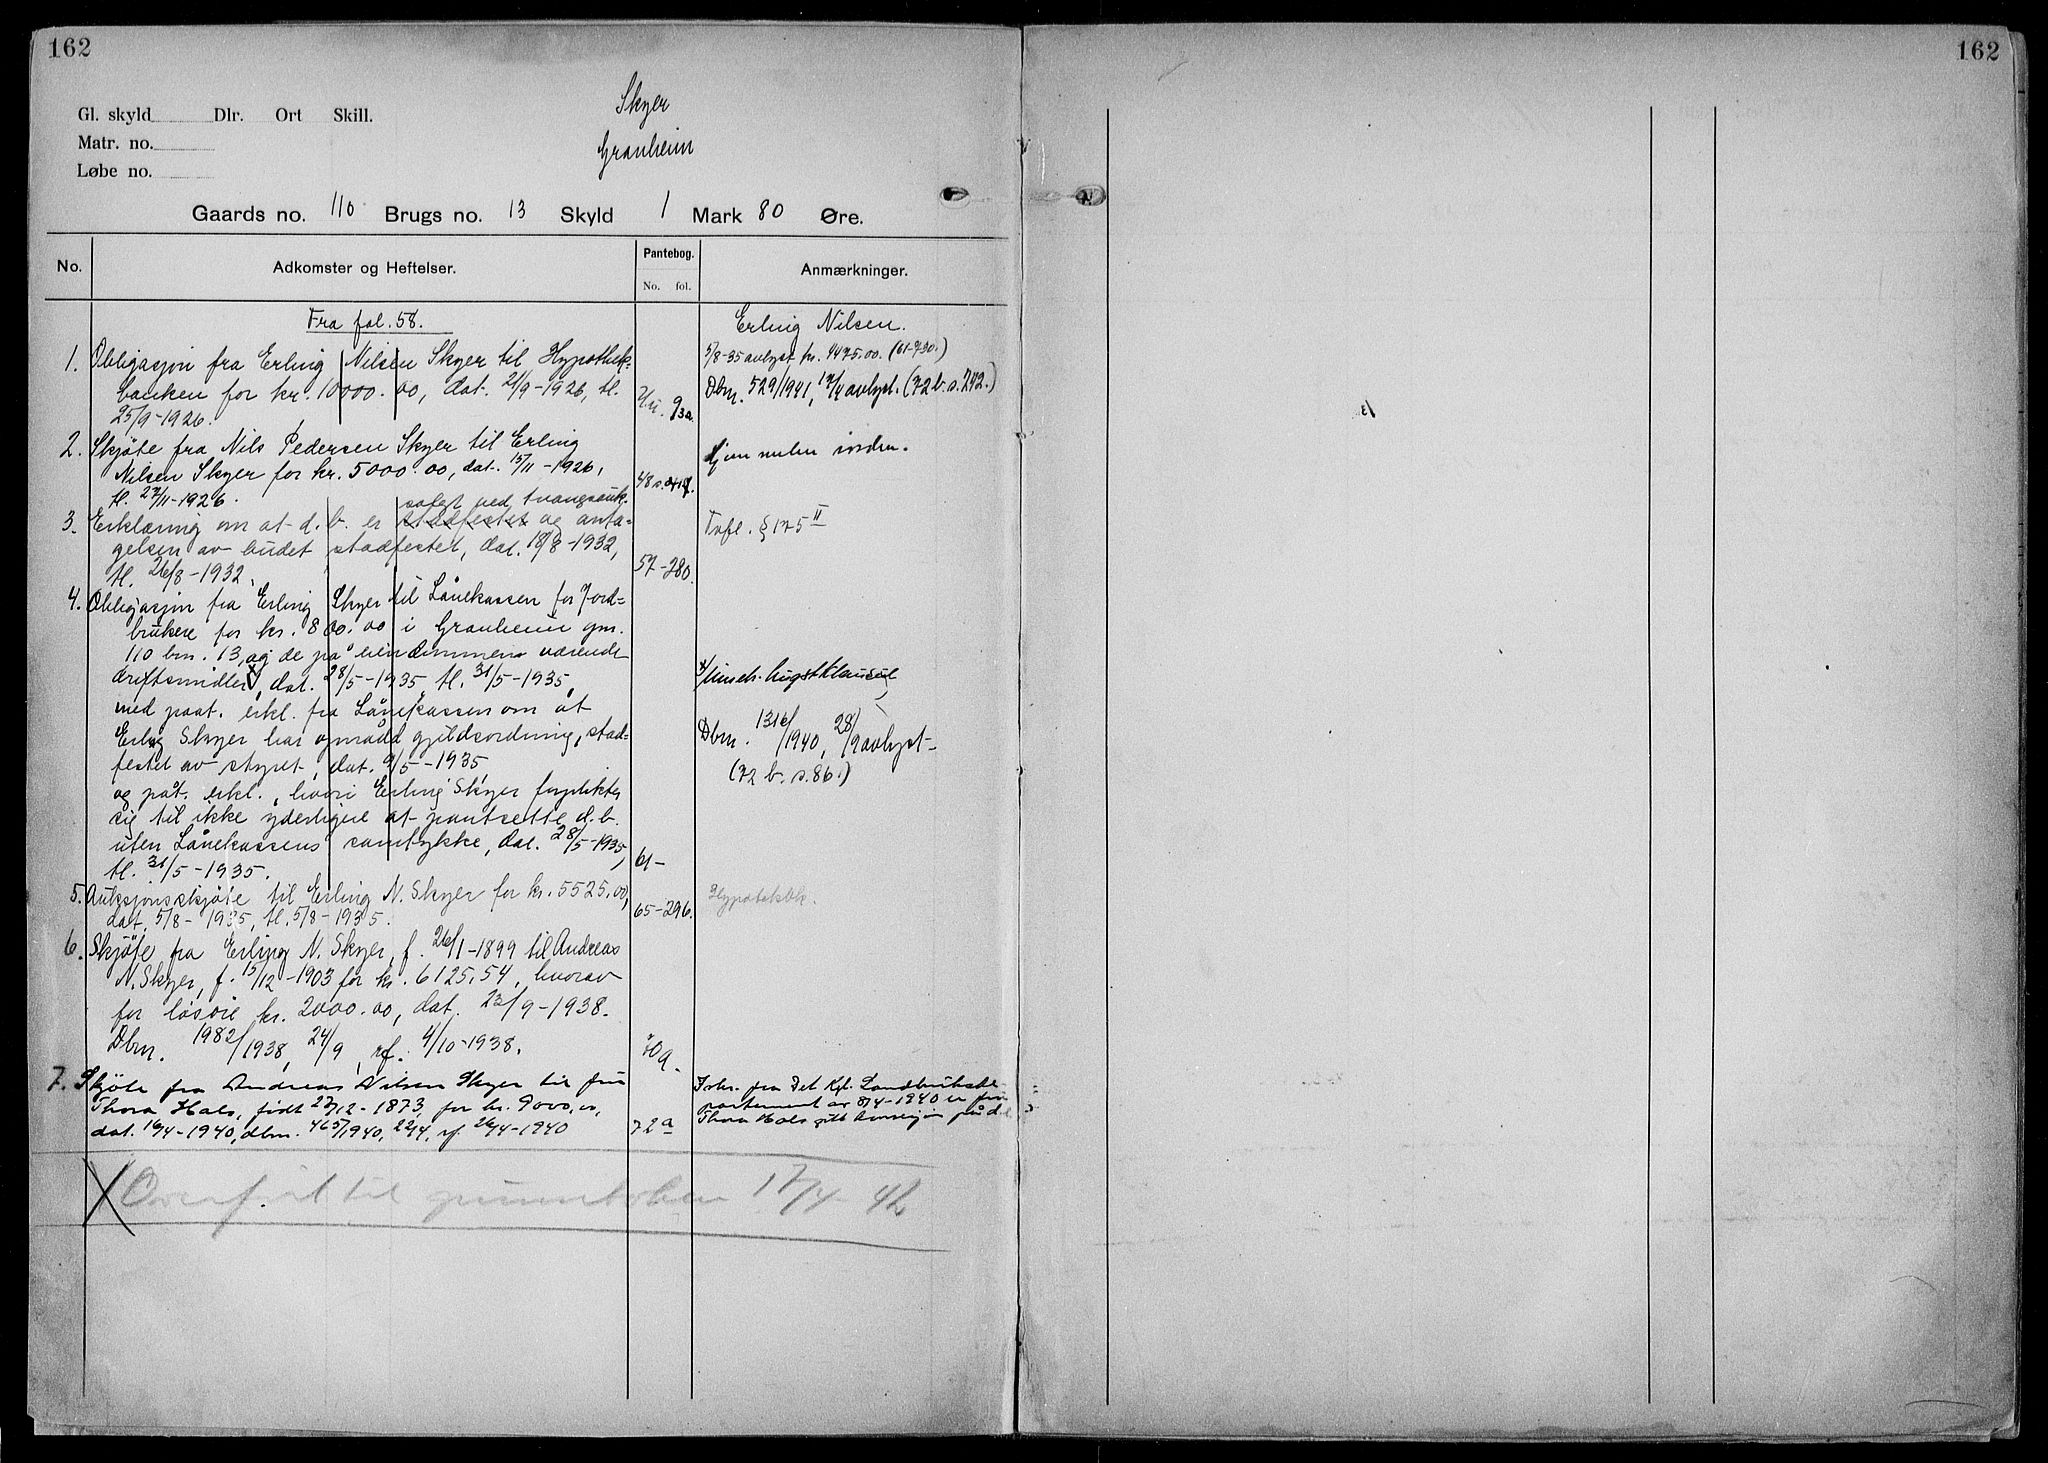 162
162
Skyer
Granheim
Gl. skyld Dlr. Ort Skill.
Matr. no.
Løbe no.
Gaards no. 110 Brugs no. 13 Skyld 1 Mark 80 Øre.
No. Adkomster og Heftelser. Pantebog. No. fol. Anmærkninger.
Fra fol. 58.
Erling Nilsen.
1. Obligasjon fra Erling Nilsen Skyer til Hypothek-
banken for kr. 10000.00, dat. 21/9-1926, tl.
25/9-1926.
5/8-35 avlyst kr. 4475.00. (61-730.)
Dbnr. 529/1941, 17/4 avlyst. (72 b. s. 242.)
2. Skjöte fra Nils Pedersen Skyer til Erling
Nilsen Skyer for kr. 5000.00, dat. 15/11-1926,
tl. 27/11-1926.
Hjemmelen iorden.
3. Erklæring om at d. b. er solgt ved tvangsauk. stadfestet og anta-
gelsen av budet stadfestet, dat. 18/8-1932,
tl. 26/8-1932.
57-280.
Tvfl. § 175 II
4. Obligasjon fra Erling Skyer til Lånekassen for Jord=
brukere for kr. 800.00 i Granheim gnr.
110 bnr. 13, og de på eiendommen værende
driftsmidler, dat. 28/5-1935, tl. 31/5-1935,
med paat. erkl. fra Lånekassen om at
Erling Skyer har opnådd gjeldsordning, stad-
festet av styret, dat. 9/5-1935
og påt. erkl., hvori Erling Skyer forplikter
sig til ikke yderligere at pantsette d. b.
uten Lånekassens samtykke, dat. 28/5-1935,
tl. 31/5-1935.
61-
x/ hugstklausul
Dbnr. 1316/1940, 28/9 avlyst-
(72 b. s. 86.)
5. Auksjonsskjöte til Erling N. Skyer for kr. 5525.00,
dat. 5/8-1935, tl. 5/8-1935.
65-296.
Hypotekbk.
6. Skjöte fra Erling N. Skyer, f. 26/1-1899 til Andreas
N. Skyer, f. 15/12-1903 for kr. 6125.54, hvorav
for løsøre kr. 2000.00, dat. 23/9-1938.
Dbnr. 1982/1938, 24/9, rf. 4/10-1938.
70 a.
7. Skjöte fra Andreas Nilsen Skyer til fru
Thora Hals, født 27/12-1873, for kr. 9000.00,
dat. 16/4-1940, dbnr. 465/1940, 22/4, rf. 26/4-1940
72 a
fra Det Kgl. Landbruksde-
partement av 8/4-1940 er fru
Thora Hals gitt konsesjon på d.
Overført til grunnboken 17/4-42